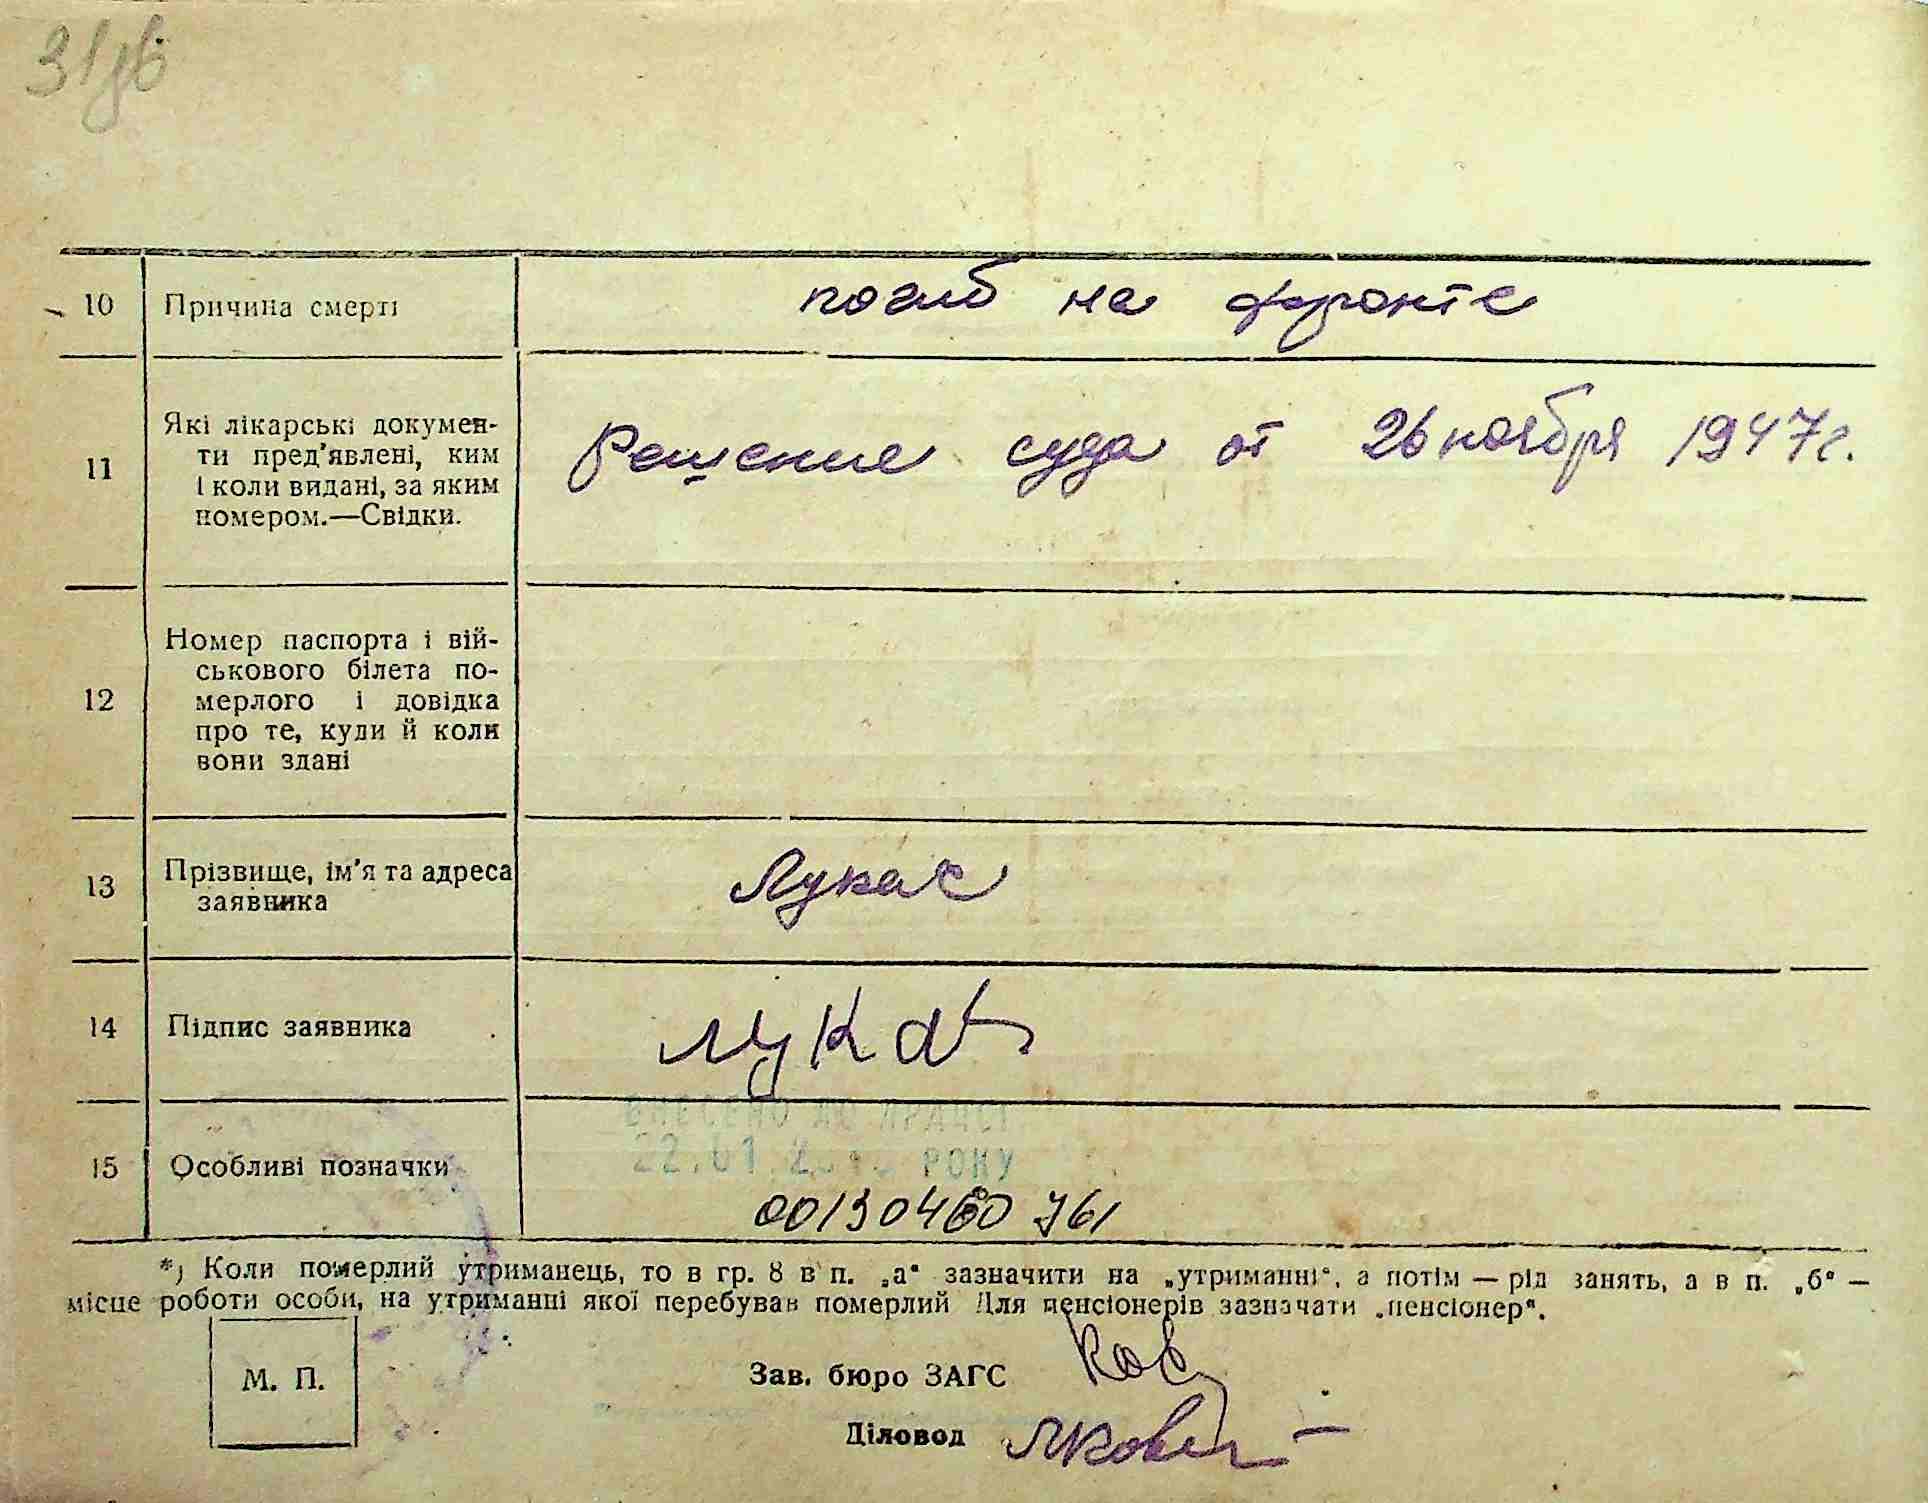 31зв
10 Причина смерті погиб на фронте
11 Які лікарські докумен-
ти пред'явлені, ким
і коли видані, за яким
номером.—Свідки.
Решение суда от 26 ноября 1947 г.
12 Номер паспорта і вій-
ськового білета по-
мерлого і довідка
про те, куди й коли
вони здані
13 Прізвище, ім'я та адреса
заявника
Лукас
14 Підпис заявника
ВНЕСЕНО ДО ДРАЦСГ
22.01.2 РОКУ
15 Особливі позначки
761
*) Коли померлий утриманець, то в гр. 8 в п. „а“ зазначити на „утриманні“, а потім — рід занять, а в п. „б“ —
місце роботи особи, на утриманні якої перебував померлий Для пенсіонерів зазначати „пенсіонер“.
М. П.
Зав. бюро ЗАГС
Діловод